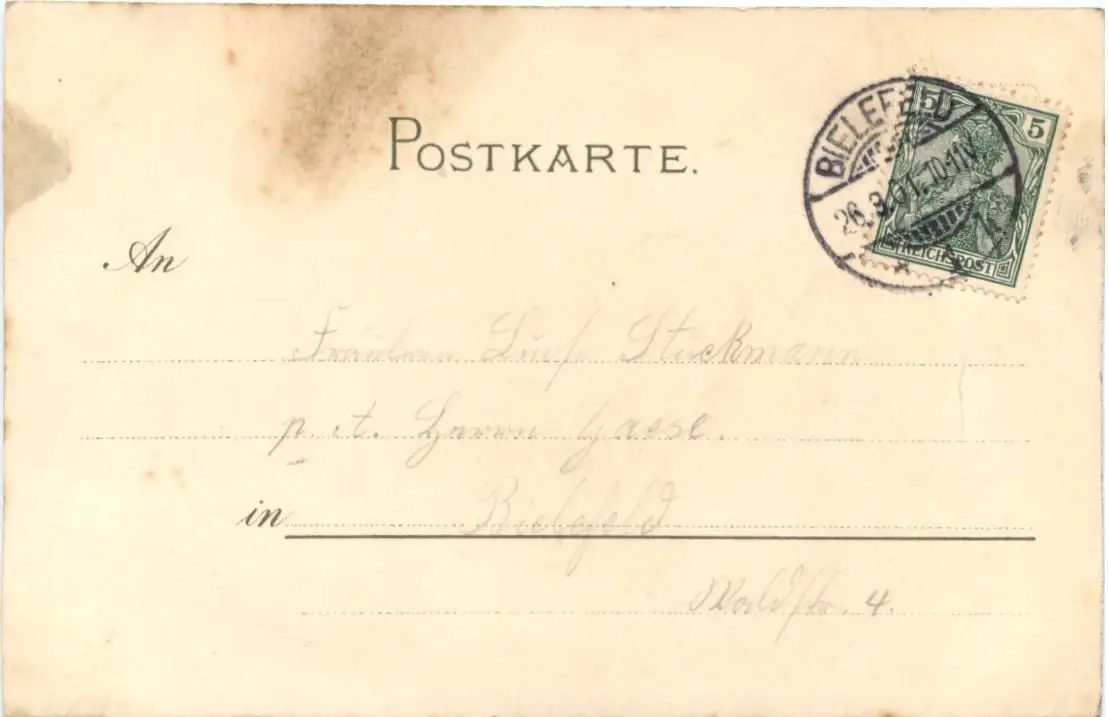 POSTKARTE.
BIELEFELD
26.9.01. 10-11V.
5 5
REICHSPOST
An
Fräulein Luise Stuckmann
p. A. Herrn Gasse.
in Bielefeld
Waldstr. 4.